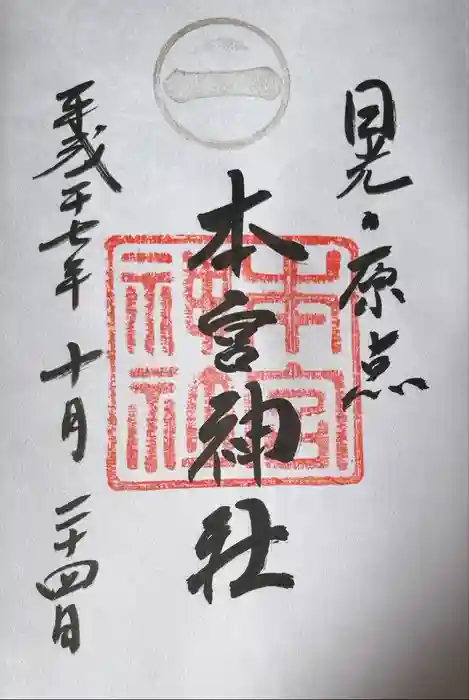 日光の原点
一
本宮神社
本宮神社
平成二十七年 十月 二十四日